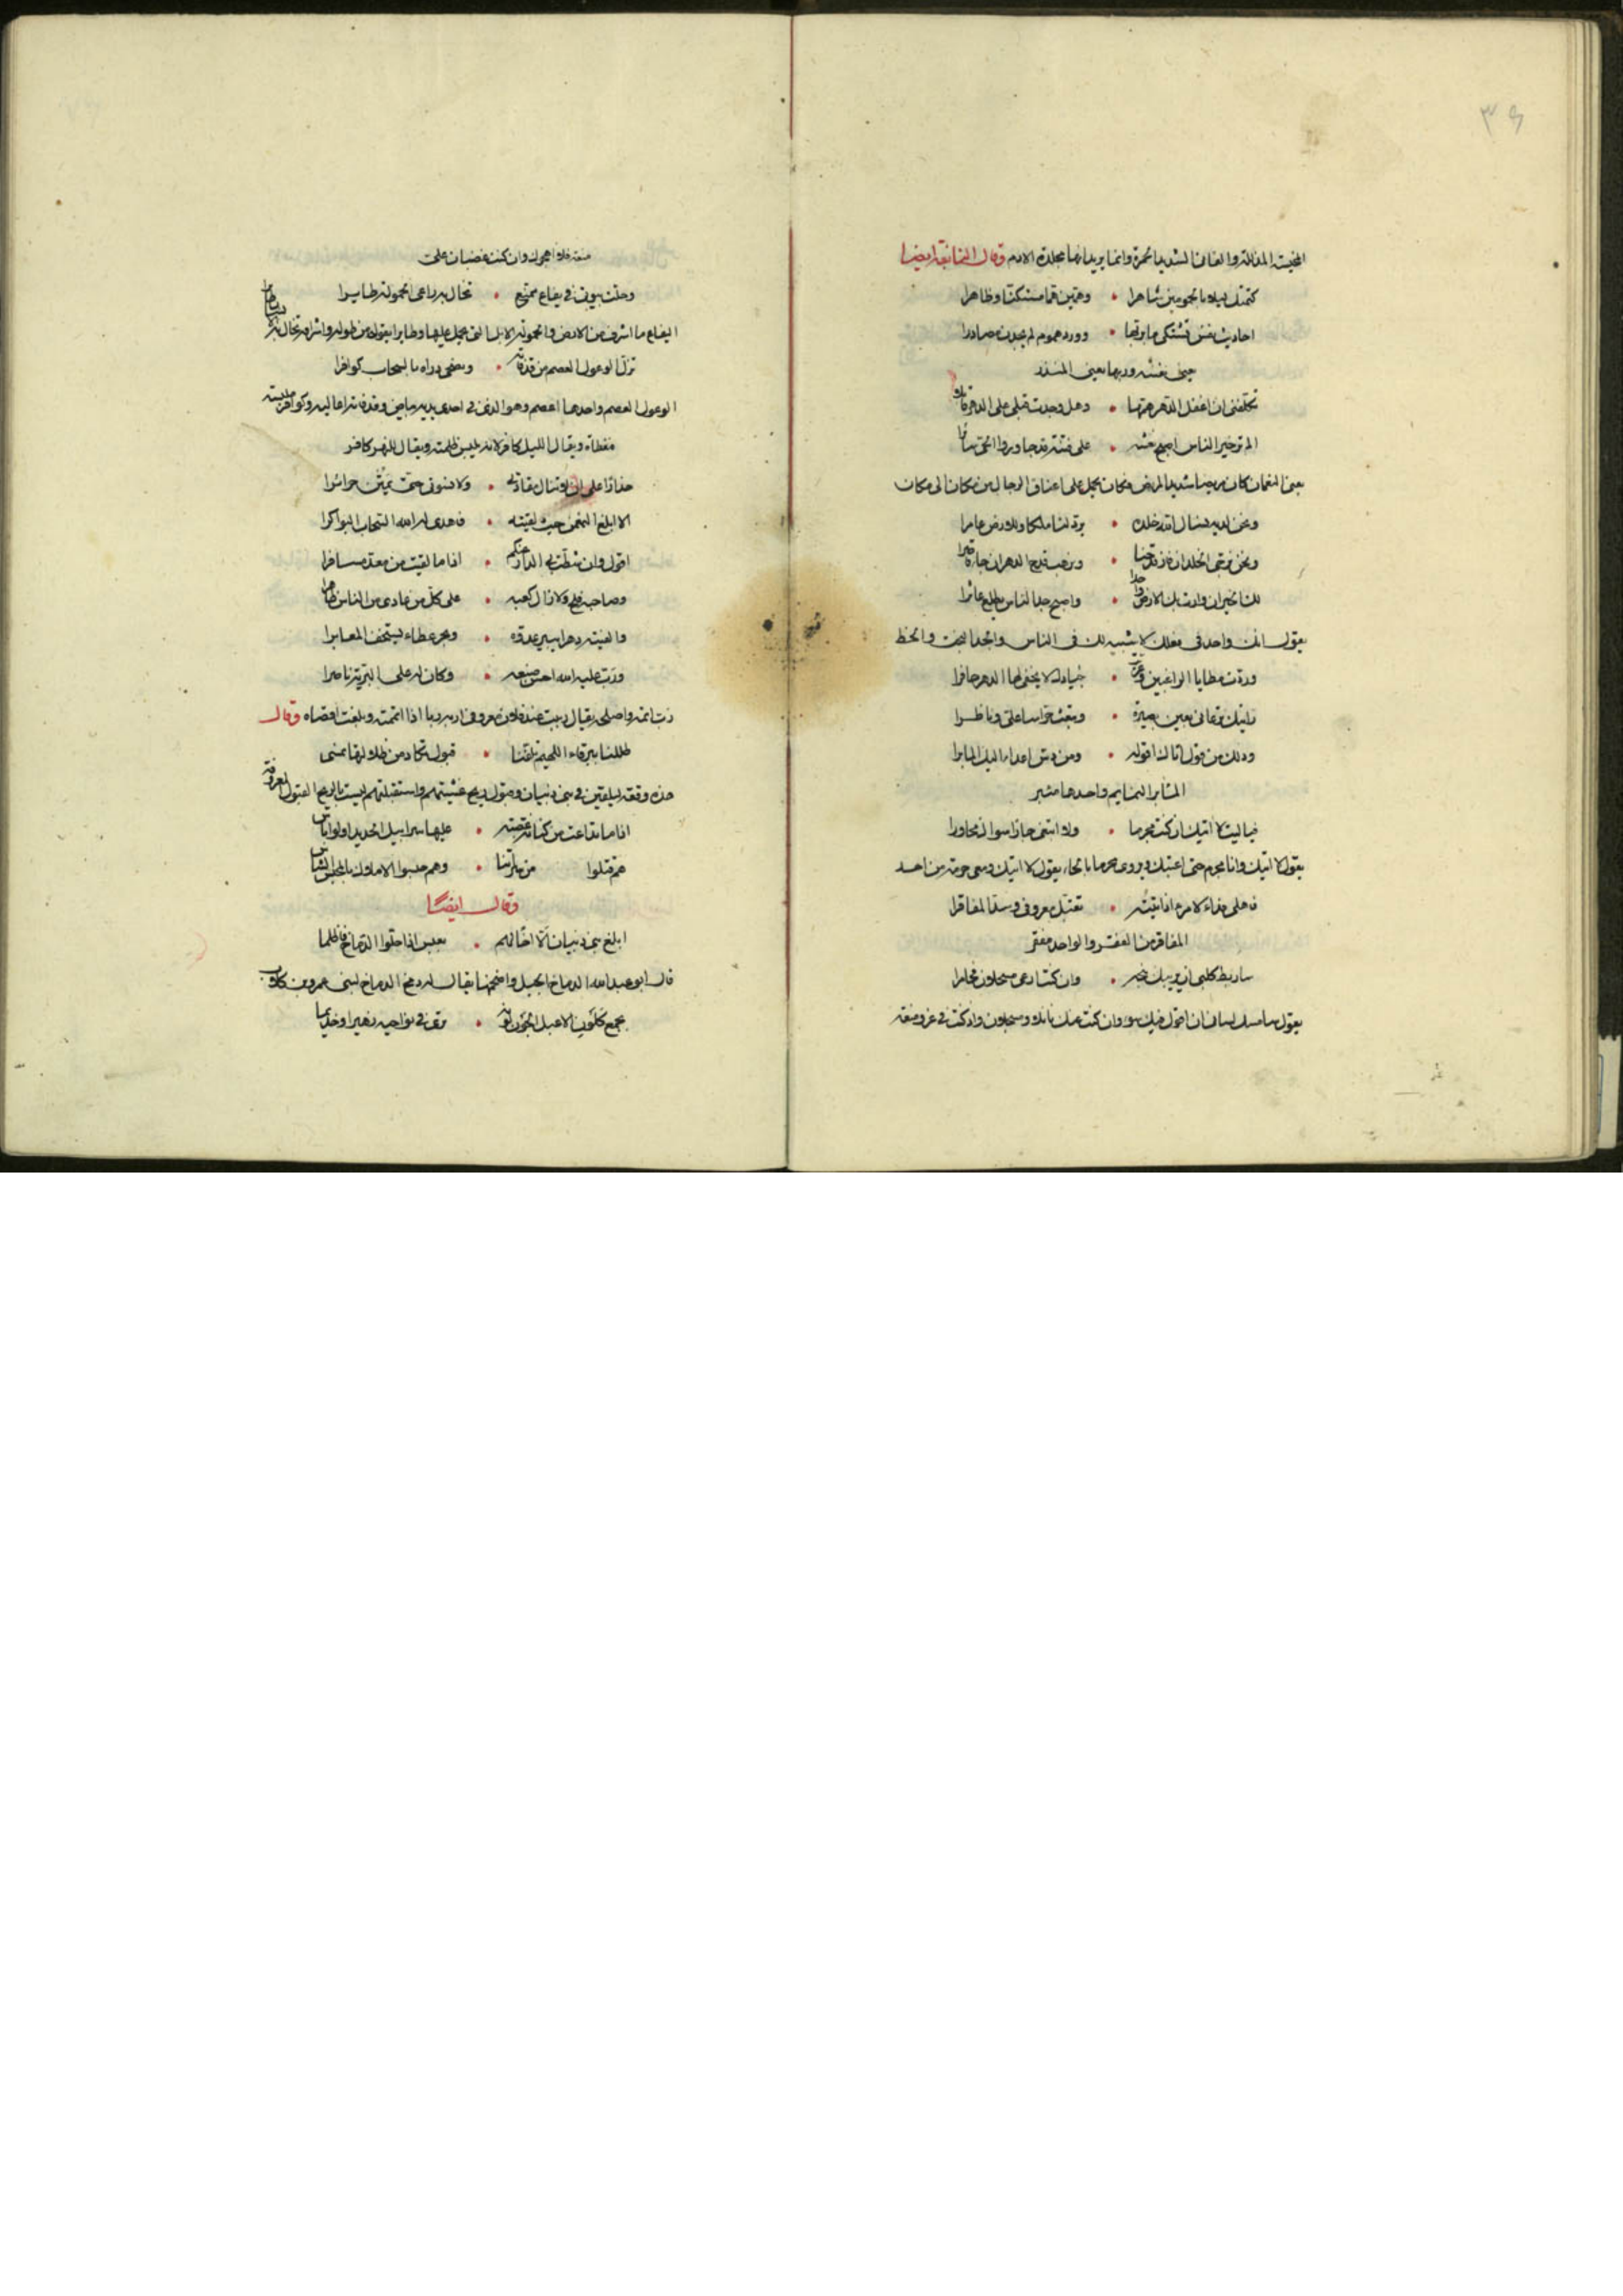 ٣٦
المخيسة المذللة والقانى الشديد الحمرة وانما يريد انها مجللة الادم وقال النابغة ايضا
كتمتك ليلا بالجمومين ساهرا • وهمين هما مستكنا وظاهرا
احاديث نفس تشتكى ما يريبها • وورد هموم لم يجدن مصادرا
يعنى نفسه وربها يعنى المنذر
تكلفنى ان اغفل الدهر همها • وهل وجدت قبلى على الدهر قادرا
الم تر خير الناس اصبح نعشه • على فتية قد جاوزوا الحى سائرا
يعنى النعمان كان مريضا شديد المرض فكان يحمل على اعناق الرجال من مكان الى مكان
ونحن لديه نسال الله خلده • يرد لنا ملكا وللارض عامرا
ونحن نرجى الخلد ان فاز قدحنا • ونرهب قدح الدهر ان جاء قامرا
لك الخير ان وارت بك الارض واحدا • واصبح جد الناس يظلع عاثرا
يقول انت واحد فى فعلك لا شبيه لك فى الناس والجد البخت والحظ
وردت مطايا الراغبين وعريت • جيادك لا يحفى لها الدهر حافرا
رايتك ترعانى بعين بصيرة • وتبعث حراسا على وناظرا
وذلك من قول اتاك اقوله • ومن دس اعداء اليك المابرا
المآبر النمايم واحدها مئبر
فياليت لا اتيك ان كنت مجرما • ولا ابتغى جارا سواك مجاورا
يقول لا اتيك وانا مجرم حتى اعتبك ويروى محرما بالحاء يقول لا اتيك ومعى حرمة من احد
فاهلى فداء لامرء اذا اتيته • تقبل معروفى وسد المفاقرا
المفاقر من الفقر والواحد مفقر
ساربط كلبى ان يريبك نبحه • وان كنت ارعى مسحلان فحامرا
يقول سامسك لسانى ان اقول فيك سوء وان كنت عنك نائلا ومسحلان واد كنت فى عز ومنعة
منعة فلا اهجوك وان كنت غضبان على
وحلت بيوتى فى يفاع ممنع • تخال به راعى الحمولة طايرا
اليفاع ما اشرف من الارض والحمولة الابل التى يحمل عليها وطايرا يقول من طوله واشرافه تخال به
تزل الوعول العصم عن قذفاته • وتضحى ذراه بالسحاب كوافرا
الوعول العصم واحدها اعصم وهو الذى فى احدى يديه بياض وقذفاته اعاليه وكوافر ملبسة
مغطاة ويقال الليل كافر لانه يلبس ظلمته ويقال للنهر كافر
حذارا على ان لا تنال مقادتى • ولا نسوتى حتى يمتن حرائرا
الا ابلغ النعمن حيث لقيته • فاهدى له الله السحاب البواكرا
اقول وان شطت بى الدار عنكم • اذا ما لقيت من معد مسافرا
وصاحبه فلج ولا زال كعبه • على كل من عادى من الناس ظاهرا
والفيته دهرا يبير عدوه • وبحر عطاء يستخف المعابرا
ورب عليه الله احسن صنعه • وكان له على البرية ناصرا
رب اتمه واصلحه يقال ربيت عند فلان معروفى اربه ربا اذا اتممته وبلغت اقصاه وقال
ظللنا ببرقاء اللهيم تلفنا • قبول تكاد من ظلالها تمسى
اذا ما تداعت من كنانة عصبة • عليها سرابيل الحديد
هم قتلوا
وقال ايضا
ابلغ بنى ذبيان الا اخا لهم • بعبس اذا حلوا الدماخ فاظلما
بجمع كلون الاعبل الجون لونه • ترى فى نواحيه زهيرا وحذيما